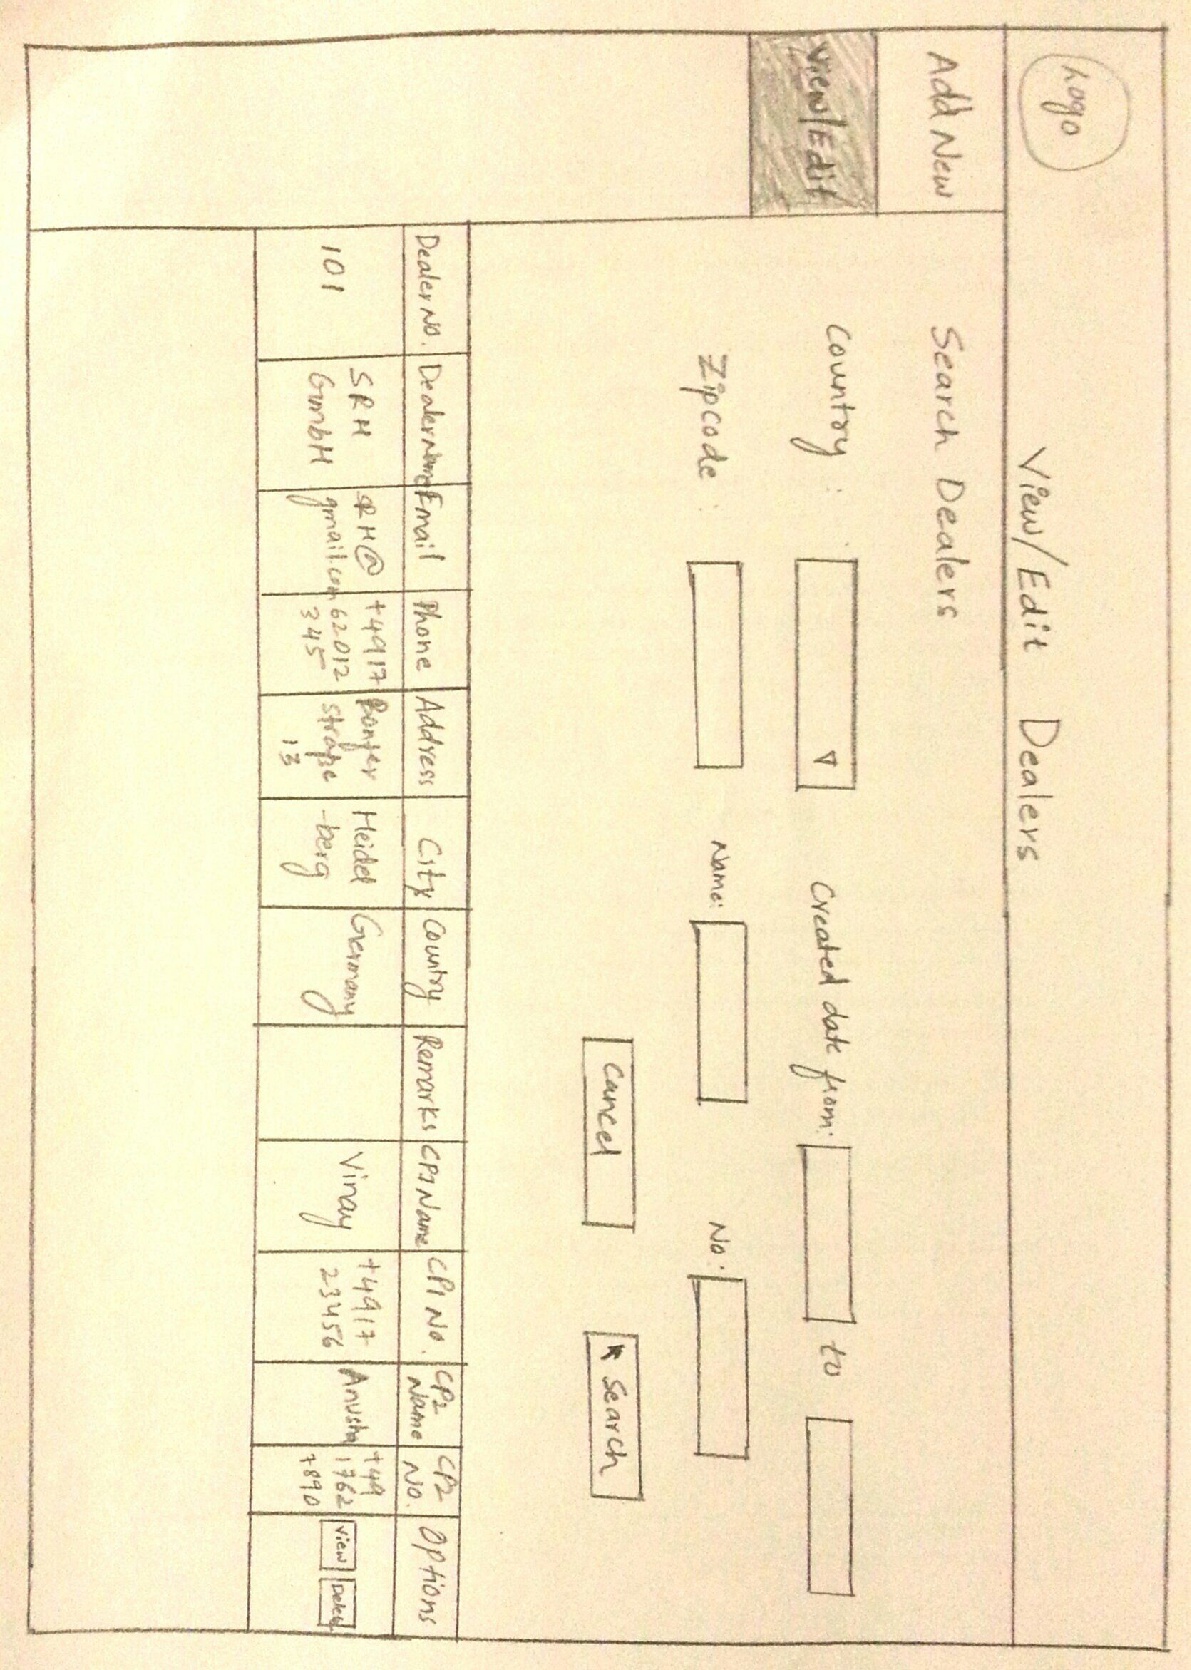 Logo
View/Edit Dealers
Add New
View/Edit
Search Dealers
Country :
Created date from:
to
Zipcode :
Name:
No:
Cancel
Search
Dealer NO.
Dealer Name
Email
Phone
Address
City
Country
Remarks
CP1 Name
CP1 No.
CP2
Name
CP2
No.
Options
101
SRH
GmbH
SRH@
gmail.com
+4917
62012
345
Bonjer
straße
13
Heidel
-berg
Germany
Vinay
+4917
23456
Anusha
+49
1762
+890
View